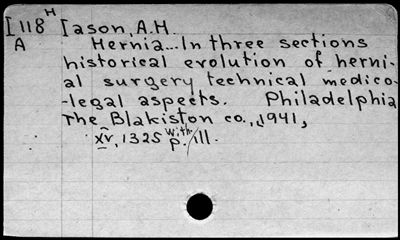 I118 H Iason, A.H.
A Hernia... In three sections
historical evolution of herni-
al surgery technical medico-
-legal aspects. Philadelphia
The Blakiston co., 1941,
xv, 1325 p. with ill.